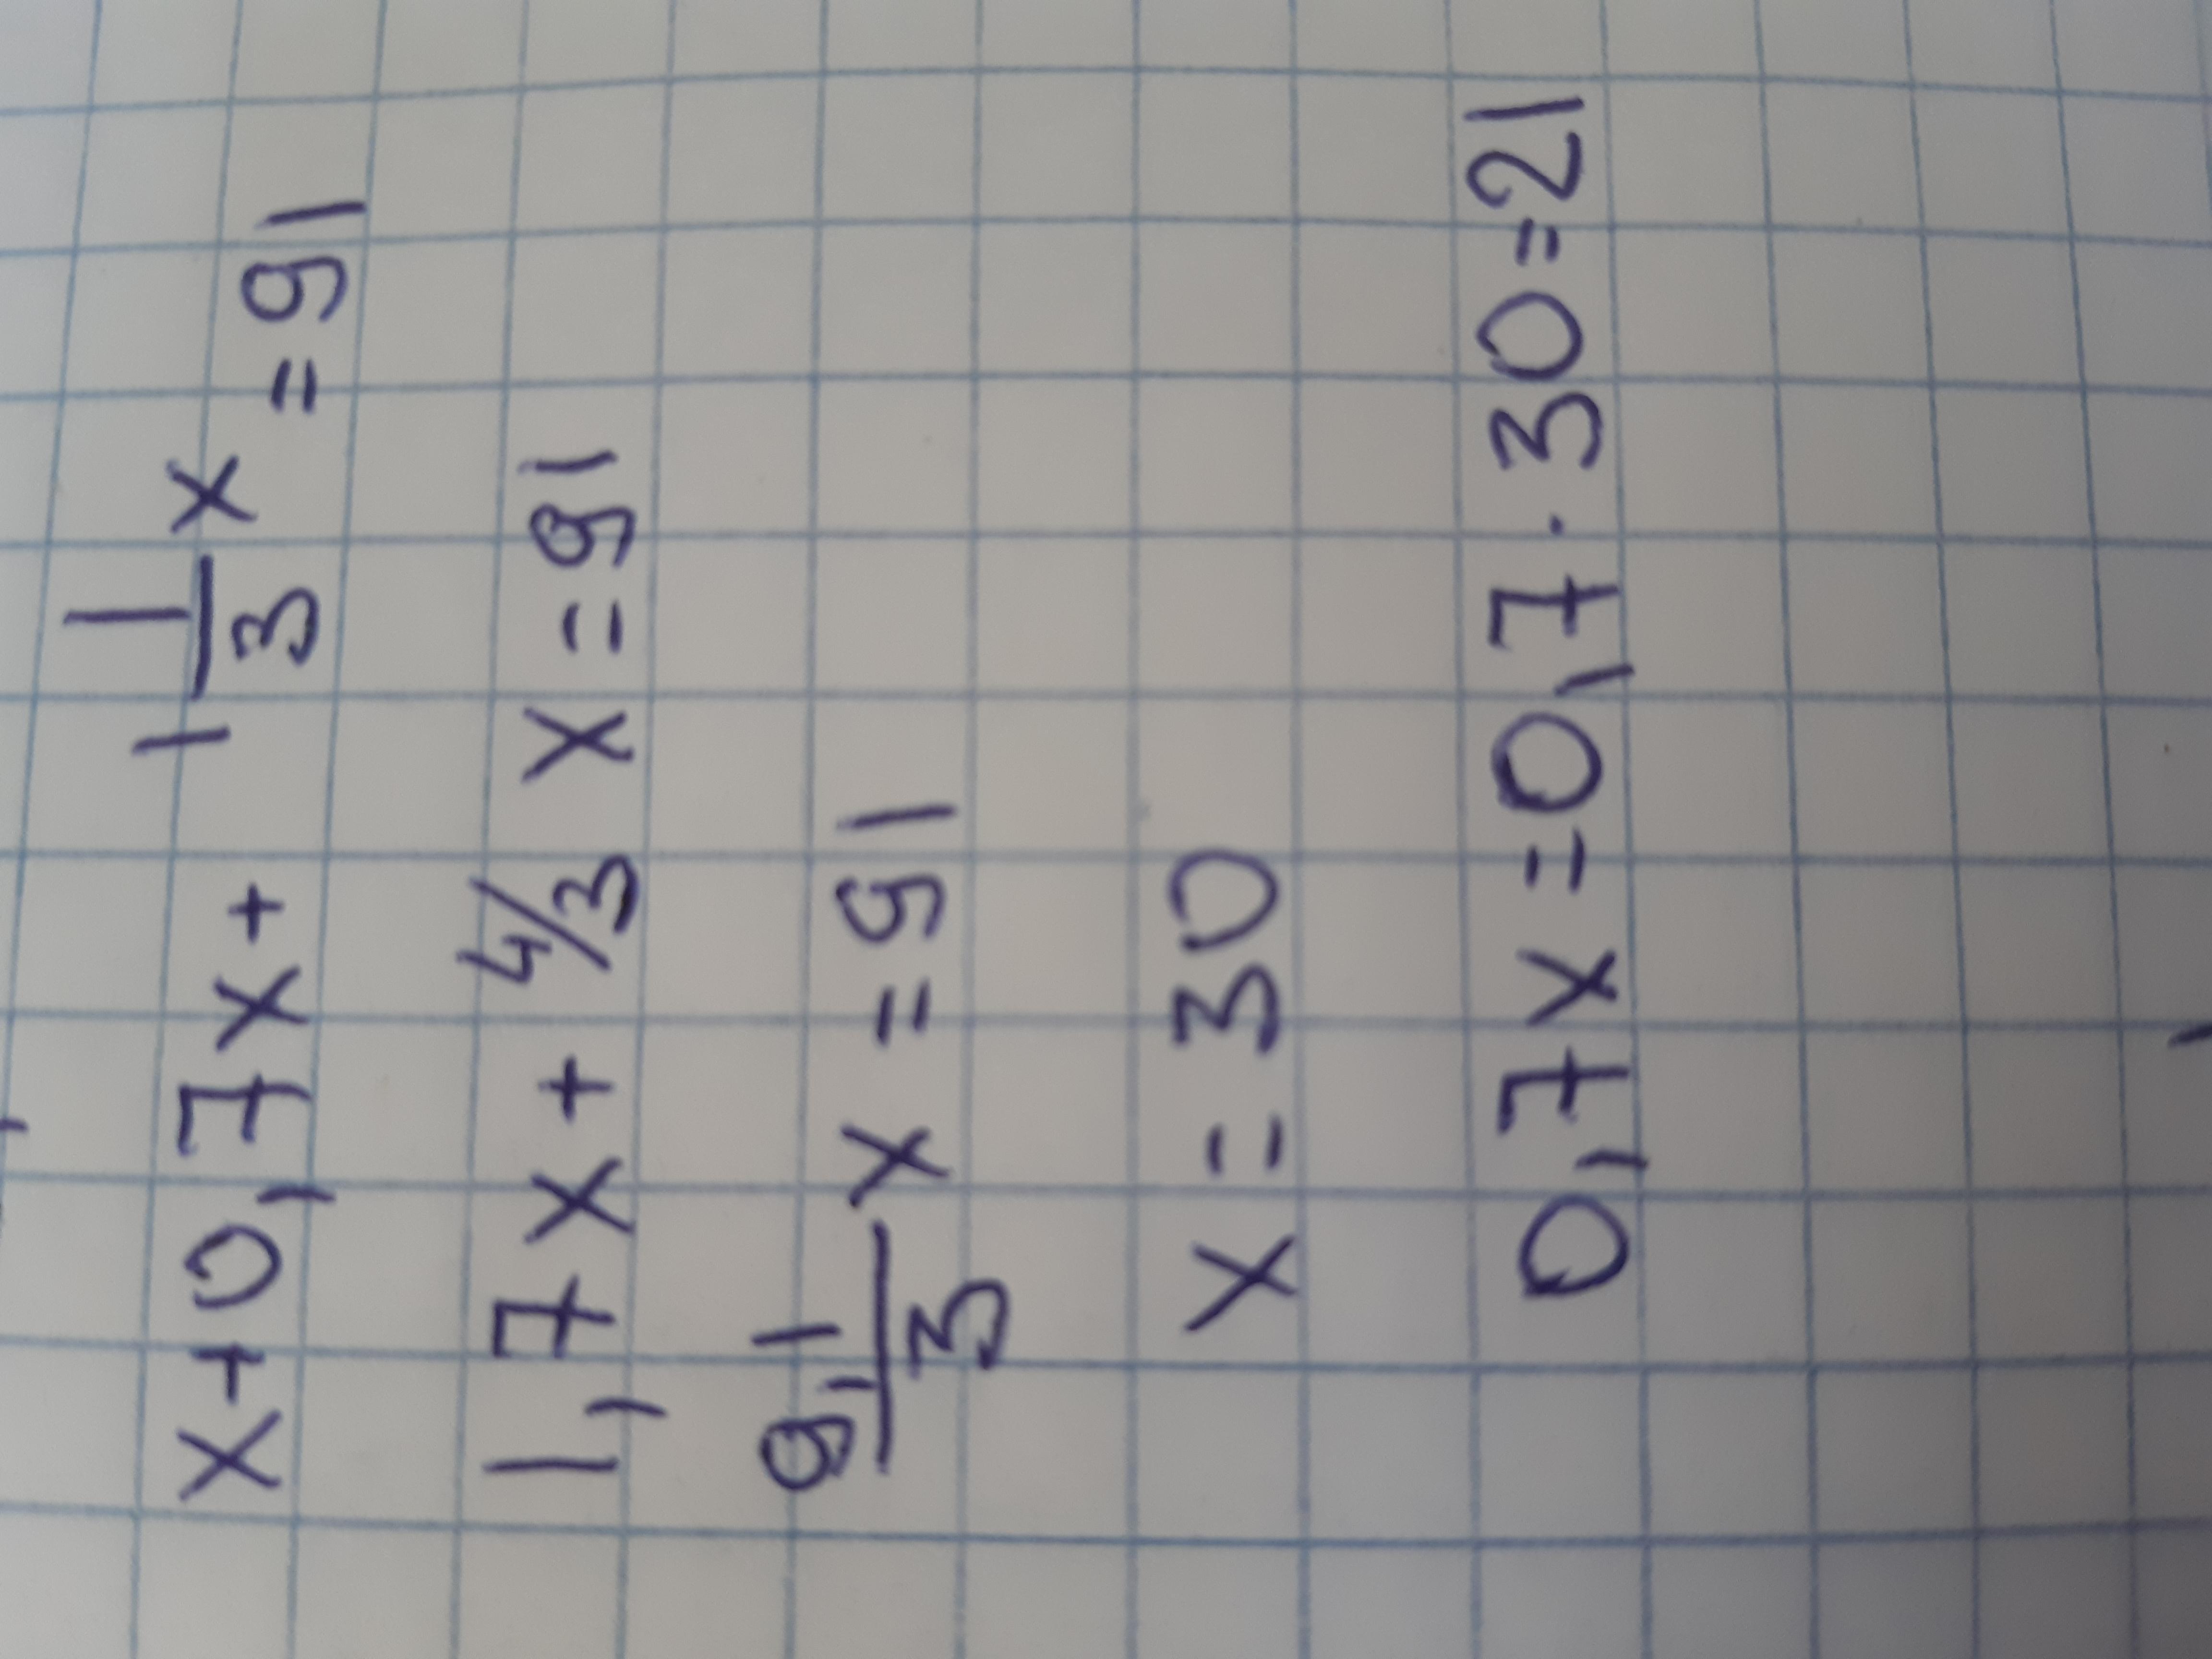 x+0,7x+ 1 1/3 x = 91
1,7x + 4/3 x = 91
9,1/3 x = 91
x = 30
0,7x = 0,7 · 30 = 21